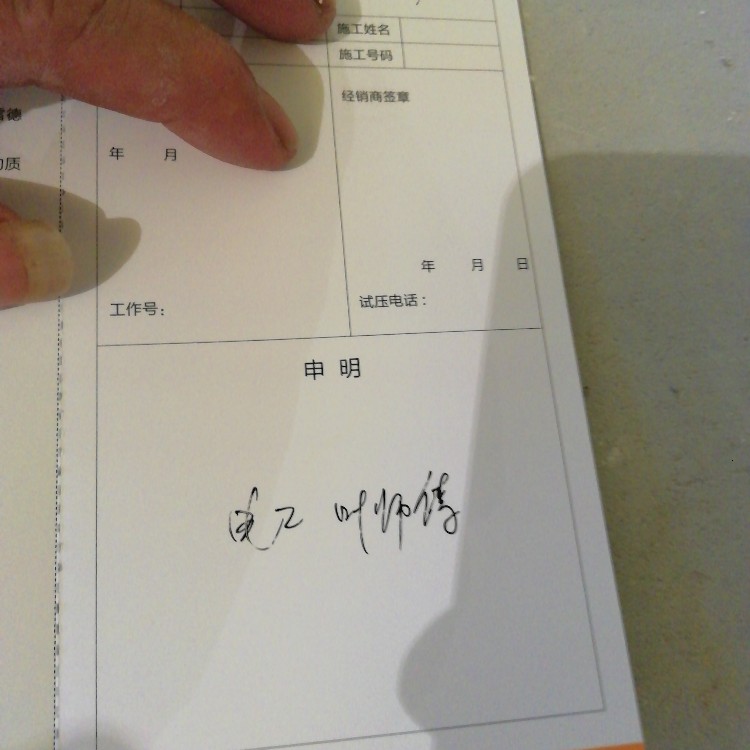 施工姓名
施工号码
经销商签章
年 月
年 月 日
工作号：
试压电话：
申 明
电工 叶师傅